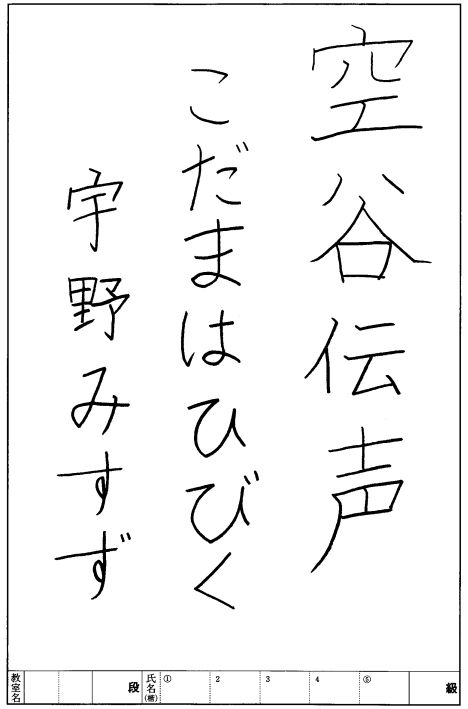 空谷伝声
こだまはひびく
宇野みすず
教室名 段 氏名(楷) ① 2 3 4 ⑤ 級